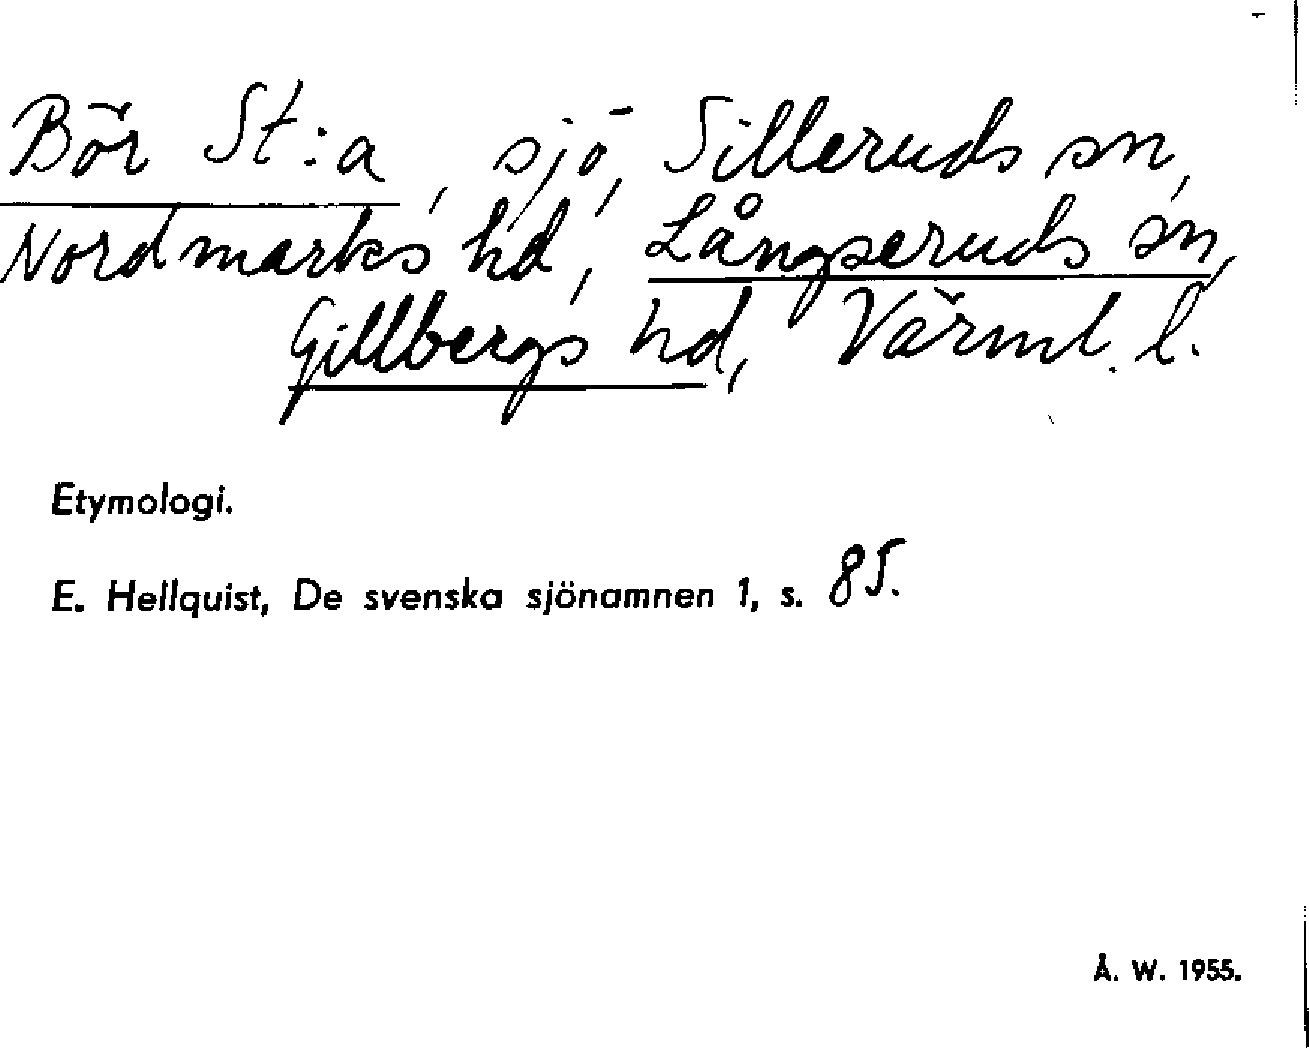 Bör St:a, sjö, Silleruds sn,
Nordmarks hd, Långseruds sn,
Gillbergs hd, Värml. l.
Etymologi.
E. Hellquist, De svenska sjönamnen 1, s. 85.
Å. W. 1955.